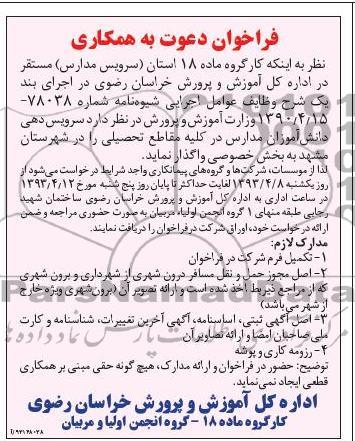 فراخوان دعوت به همکاری
نظر به اینکه کارگروه ماده ۱۸ استان (سرویس مدارس) مستقر
در اداره کل آموزش و پرورش خراسان رضوی در اجرای بند
یک شرح وظایف عوامل اجرایی شیوه‌نامه شماره ۷۸۰۳۸-
۱۳۹۰/۴/۱۵ وزارت آموزش و پرورش در نظر دارد سرویس‌دهی
دانش‌آموزان مدارس در کلیه مقاطع تحصیلی را در شهرستان
مشهد به بخش خصوصی واگذار نماید.
لذا از موسسات، شرکت‌ها و گروه‌های پیمانکاری واجد شرایط درخواست می‌شود از
روز یکشنبه ۱۳۹۳/۴/۸ لغایت حداکثر تا پایان روز پنج شنبه مورخ ۱۳۹۳/۴/۱۲
در ساعت اداری به اداره کل آموزش و پرورش خراسان رضوی ساختمان شهید
رجایی طبقه منهای ۱ گروه انجمن اولیا، مربیان به صورت حضوری مراجعه و ضمن
ارائه درخواست خود، اوراق شرکت در فراخوان را دریافت نمایند.
مدارک لازم:
۱- تکمیل فرم شرکت در فراخوان
۲- اصل مجوز حمل و نقل مسافر درون شهری از شهرداری و برون شهری
که از مراجع ذیربط اخذ شده است و ارائه تصویر آن (برون‌شهری ویژه خارج
از شهر می‌باشد)
۳- اصل آگهی ثبتی، اساسنامه، آگهی آخرین تغییرات، شناسنامه و کارت
ملی صاحبان امضا و ارائه تصاویر آن
۴- رزومه کاری و پوشه
توضیح: حضور در فراخوان و ارائه مدارک، هیچ گونه حقی مبنی بر همکاری
قطعی ایجاد نمی‌نماید.
اداره کل آموزش و پرورش خراسان رضوی
کارگروه ماده ۱۸ - گروه انجمن اولیا و مربیان